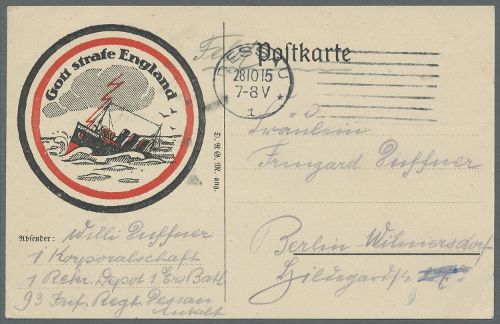 Gott strafe England
Feldp
Postkarte
DESSAU
28 10 15
7-8 V
1
Fräulein
Irmgard Duffner
Berlin Wilmersdorf
Hildegardstr.
D. R. G. M. ang.
Absender: Willi Duffner
1 Korporalschaft
1 Rekr. Depot 1 Ers Batl
93 Inf. Regt. Dessau
Anhalt